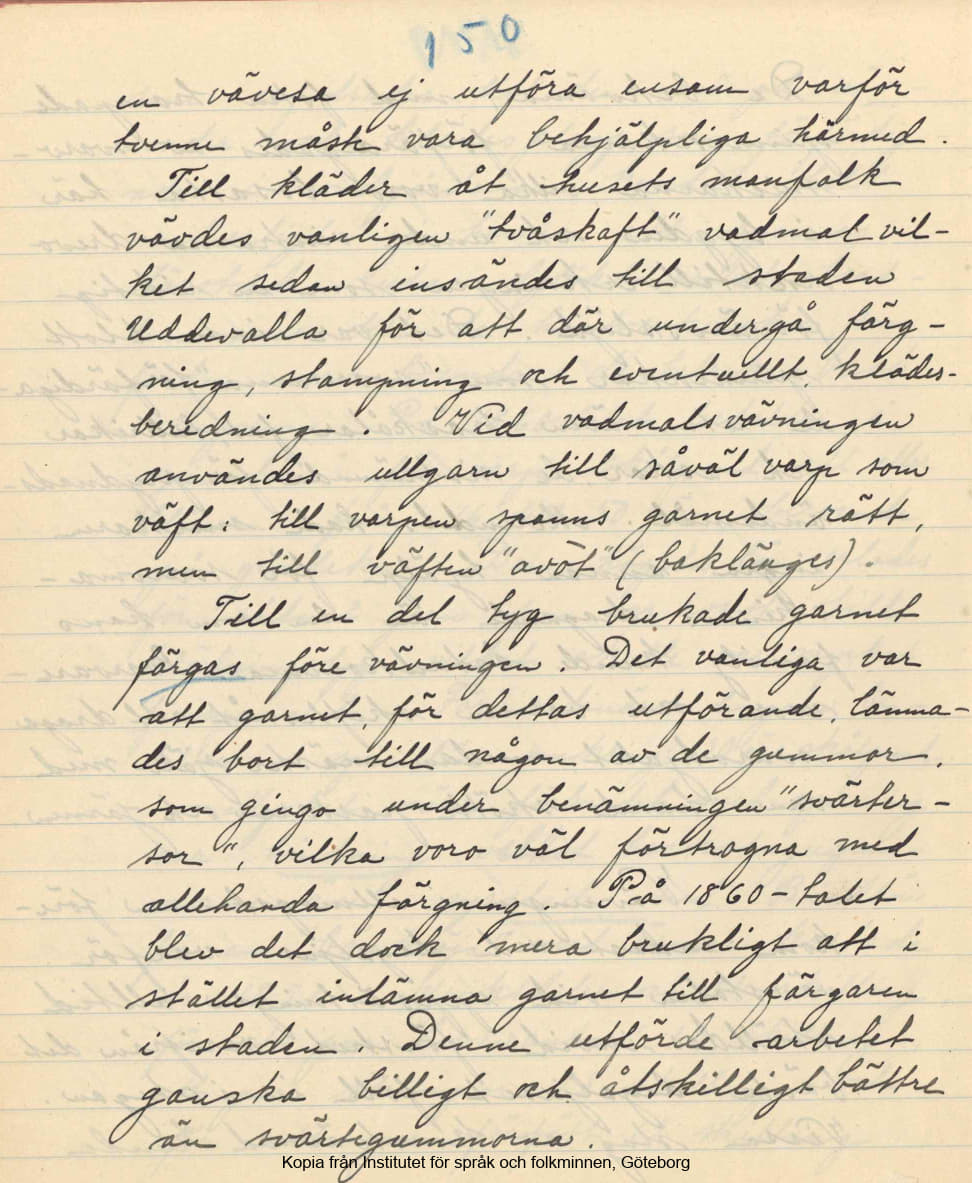 150
en vävesa ej utföra ensam varför
tvenne måst vara behjälpliga härmed.
Till kläder åt husets manfolk
vävdes vanligen "tvåskaft" vadmal vil-
ket sedan insändes till staden
Uddevalla för att där undergå färg-
ning, stampning och eventuellt klädes-
beredning. Vid vadmalsvävningen
användes ullgarn till såväl varp som
väft: till varpen spanns garnet rätt,
men till väften "avöt" (baklänges).
Till en del tyg brukade garnet
färgas före vävningen. Det vanliga var
att garnet, för dettas utförande, lämna-
des bort till någon av de gummor,
som gingo under benämningen "svärter-
sor", vilka voro väl förtrogna med
allehanda färgning. På 1860-talet
blev det dock mera brukligt att i
stället inlämna garnet till färgaren
i staden. Denne utförde arbetet
ganska billigt och åtskilligt bättre
än svärtegummorna.
Kopia från Institutet för språk och folkminnen, Göteborg